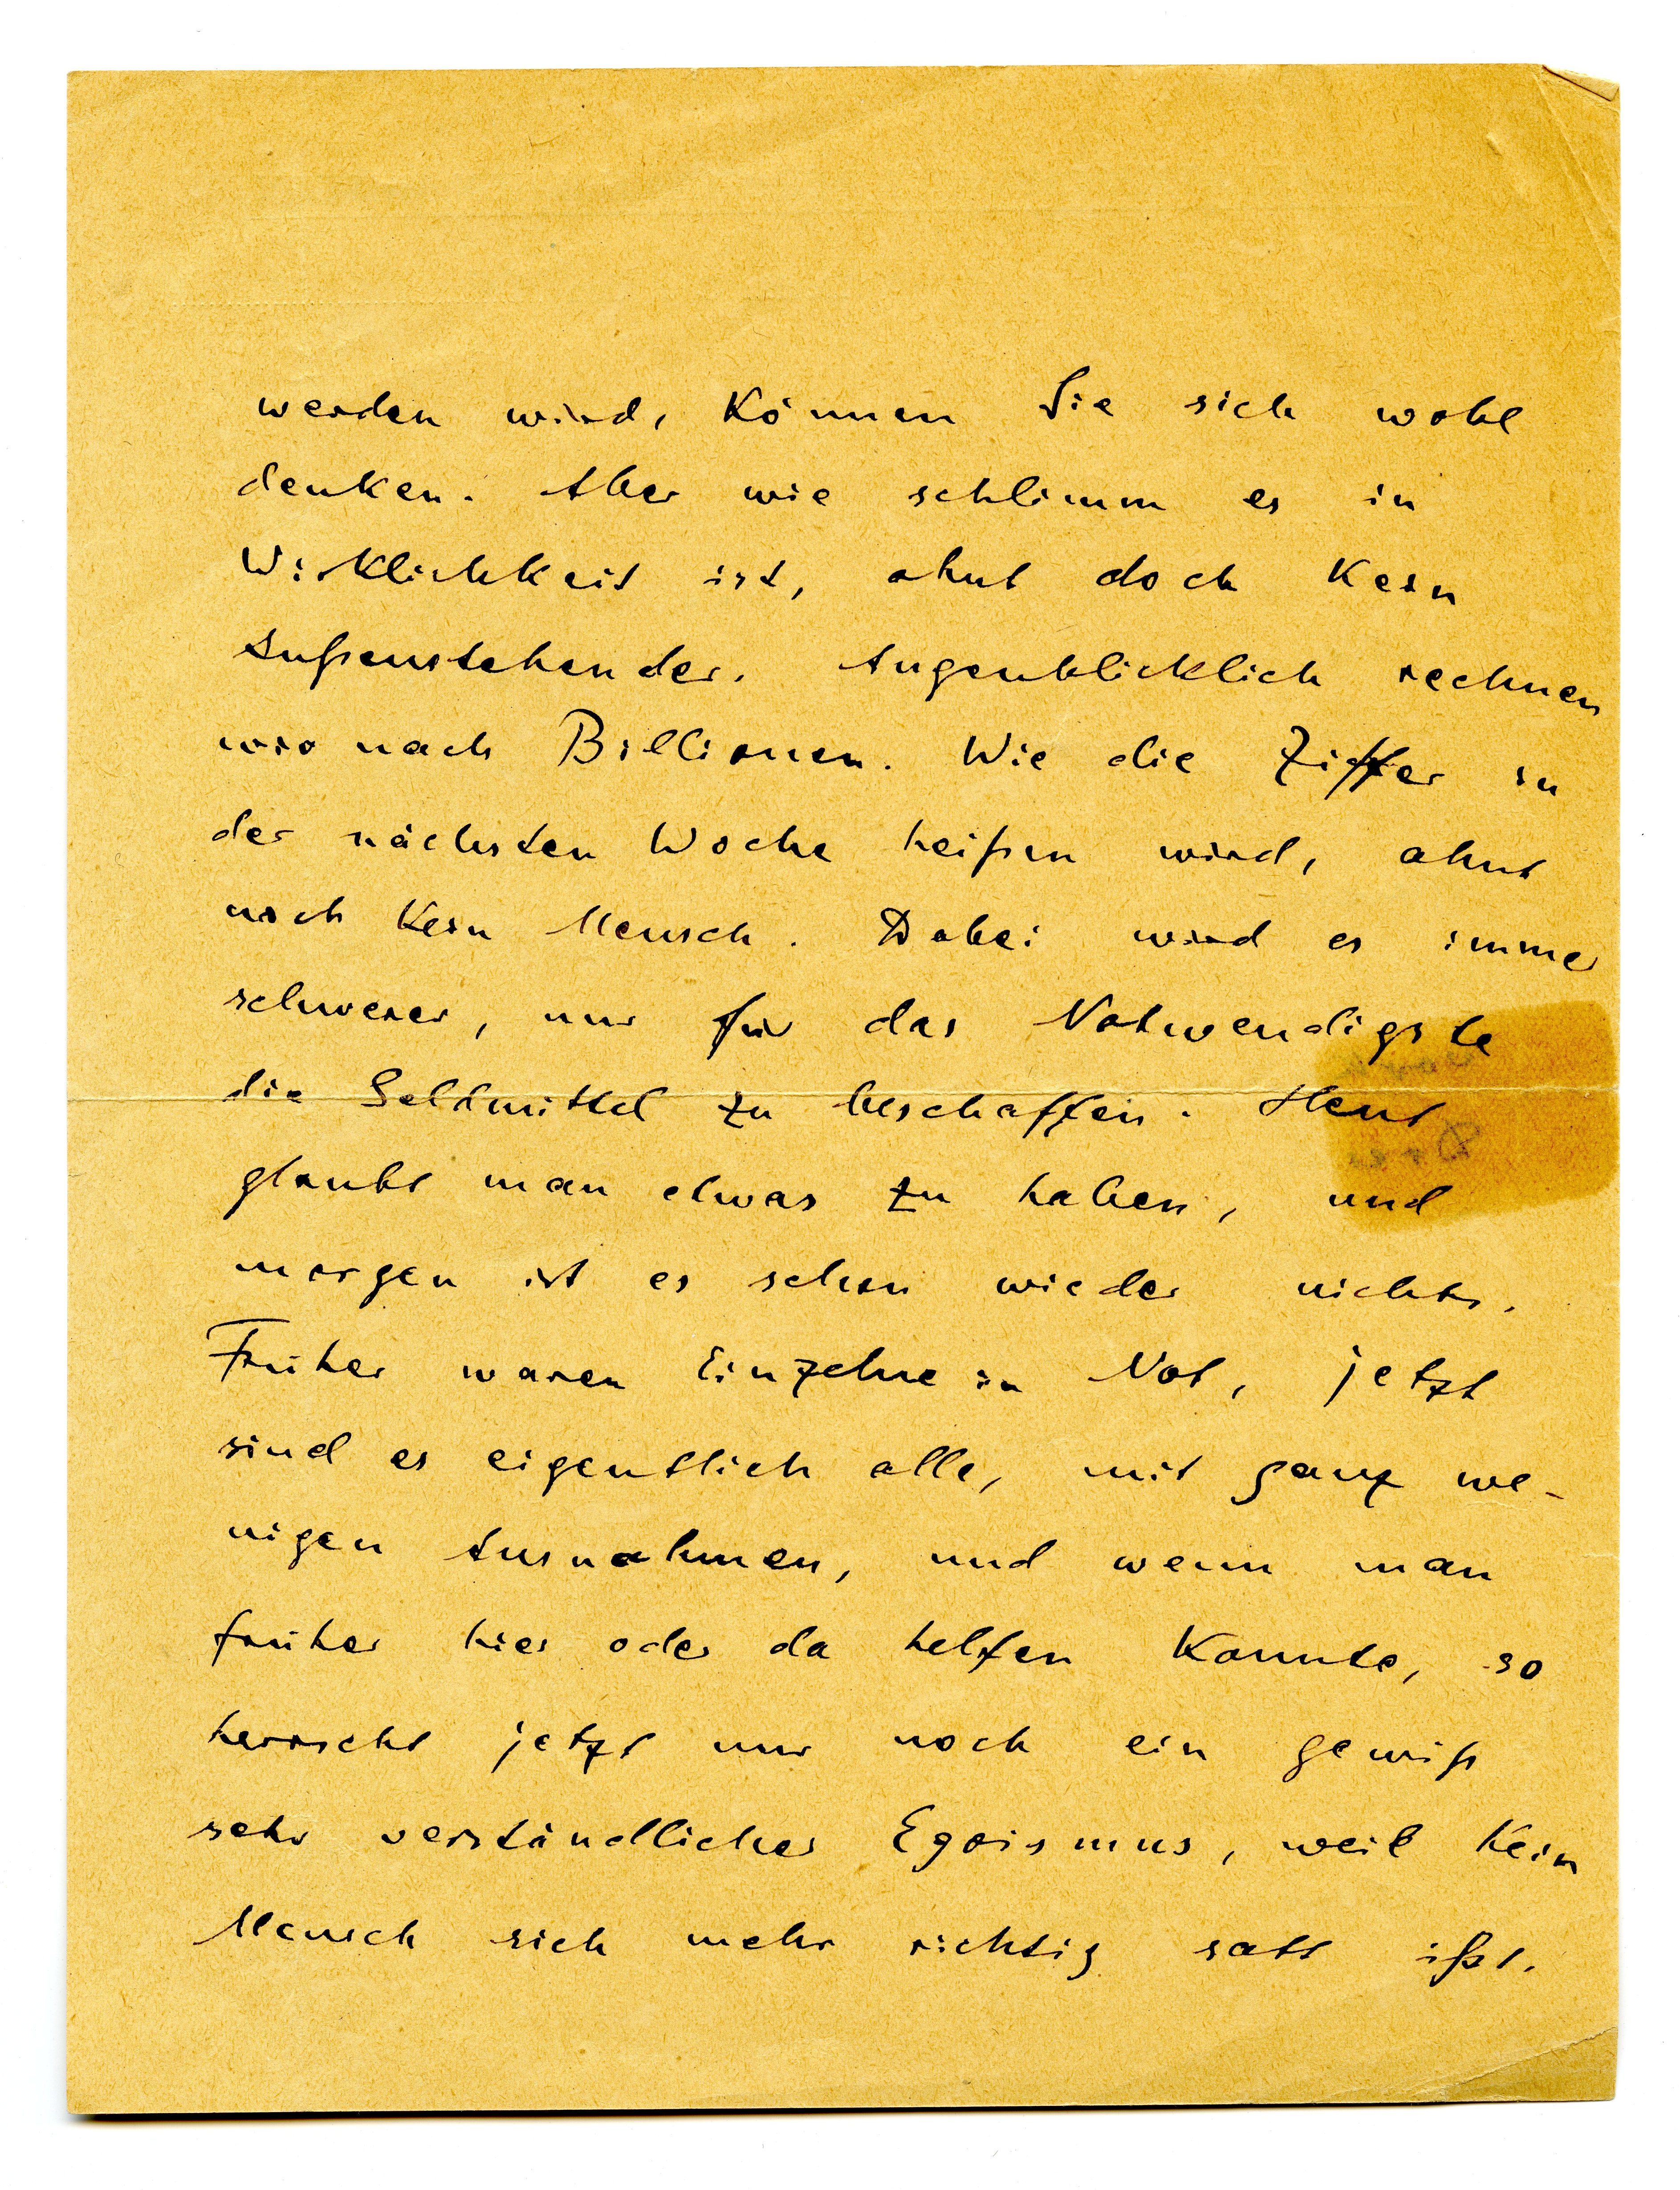 werden wird, können Sie sich wohl
denken. Aber wie schlimm es in
Wirklichkeit ist, ahnt doch kein
Außenstehender. Augenblicklich rechnen
wir nach Billionen. Wie die Ziffer in
der nächsten Woche heißen wird, ahnt
noch kein Mensch. Dabei wird es immer
schwerer, nur für das Notwendigste
die Geldmittel zu beschaffen. Heut
glaubt man etwas zu haben, und
morgen ist es schon wieder nichts.
Früher waren Einzelne in Not, jetzt
sind es eigentlich alle, mit ganz we-
nigen Ausnahmen, und wenn man
früher hier oder da helfen konnte, so
herrscht jetzt nur noch ein gewiß
sehr verständlicher Egoismus, weil kein
Mensch sich mehr richtig satt ißt.